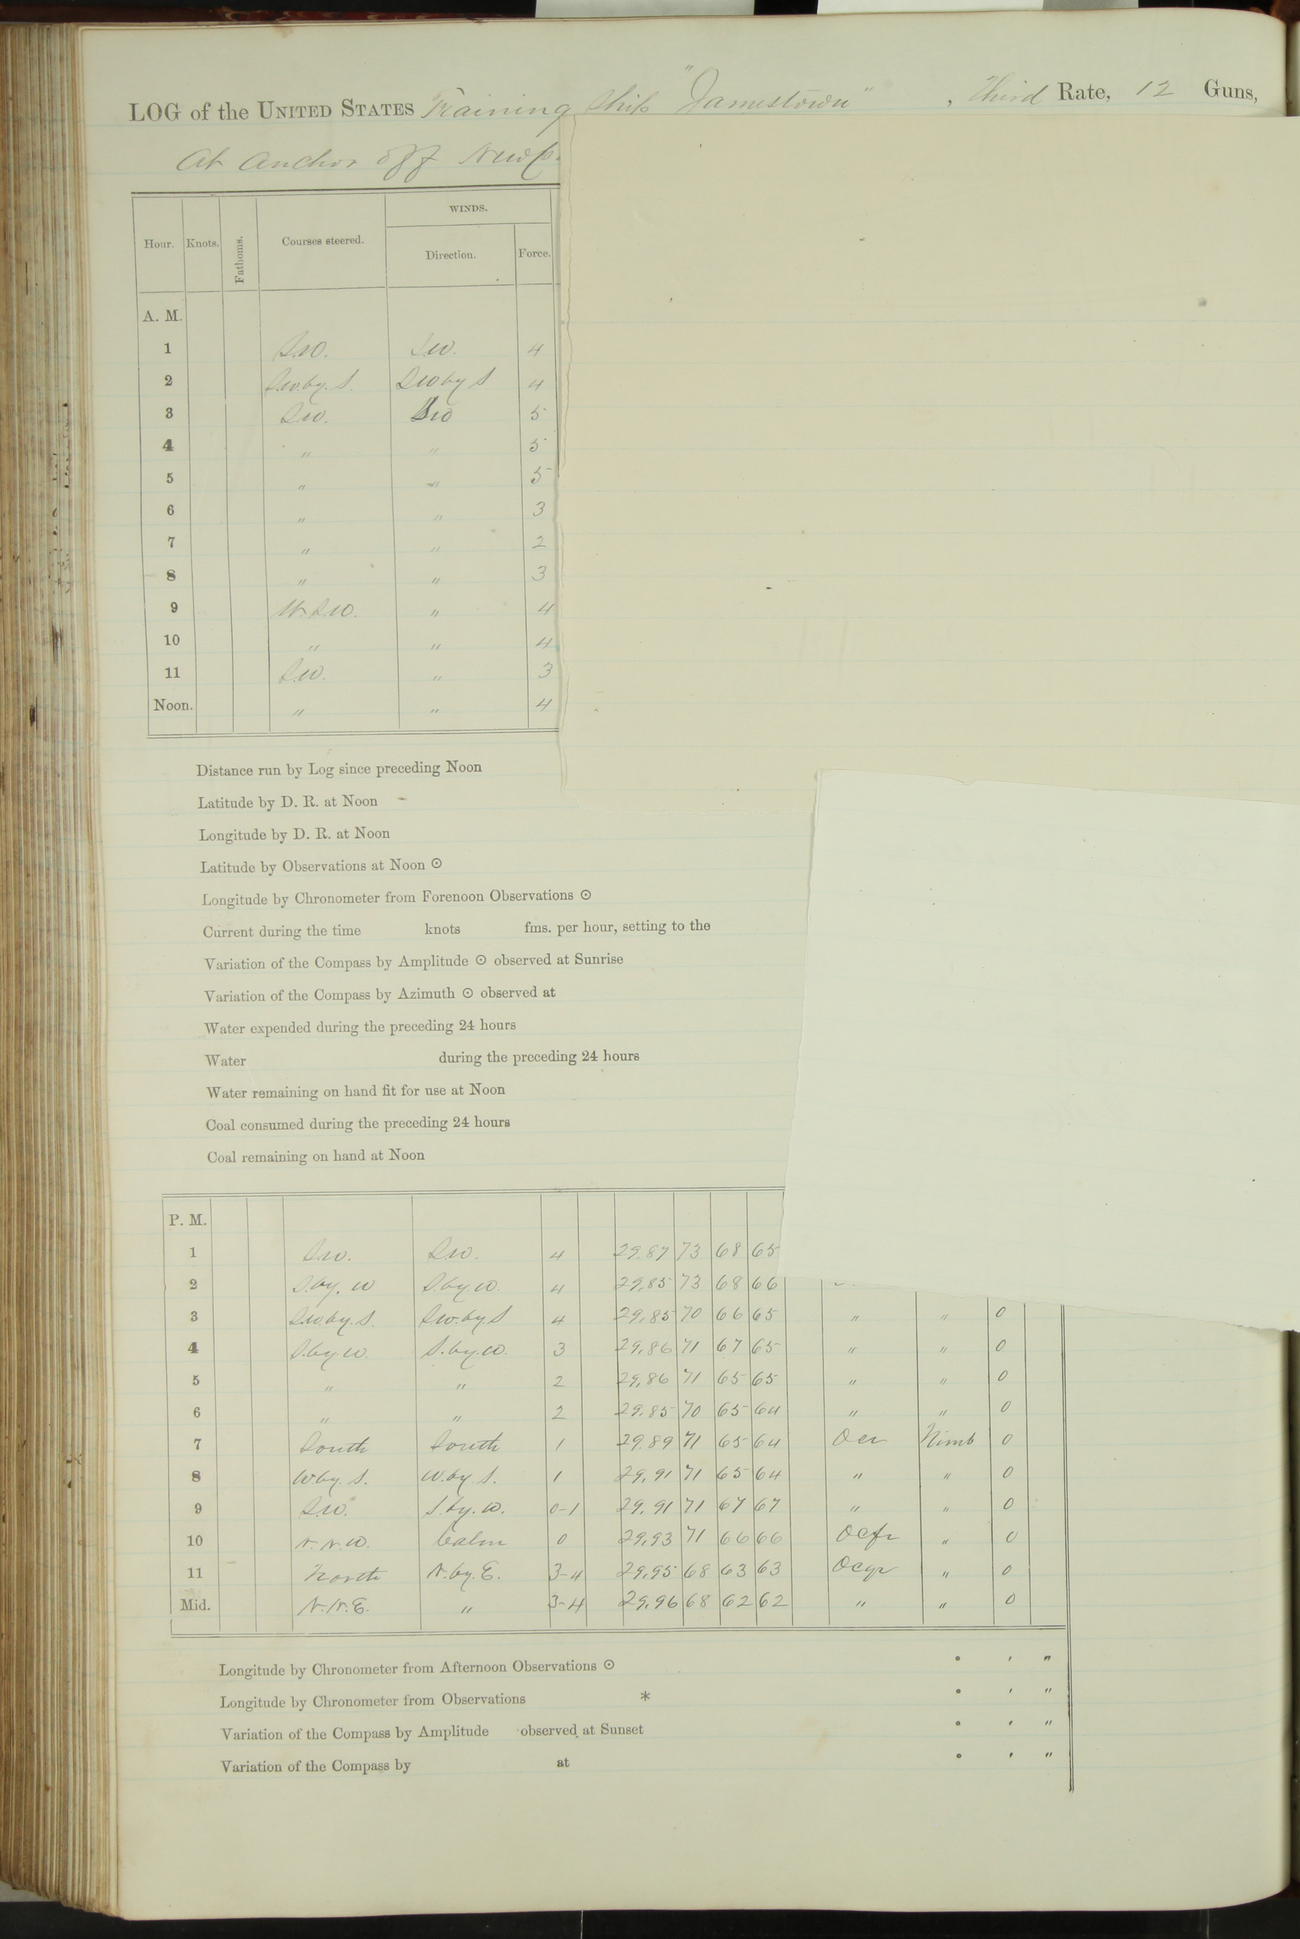 LOG of the UNITED STATES Training Ship "Jamestown", Third Rate, 12 Guns,
At Anchor off
Hour. Knots. Fathoms. Courses steered. WINDS. Direction. Force.
A. M.
1 S.W. S.W. 4
2 S.W. by. S. SW by S 4
3 S.W. SW 5
4 " " 5
5 " " 5
6 " " 3
7 " " 2
8 " " 3
9 W.S.W. " 4
10 " " 4
11 S.W. " 3
Noon. " " 4
Distance run by Log since preceding Noon
Latitude by D. R. at Noon
Longitude by D. R. at Noon
Latitude by Observations at Noon ⊙
Longitude by Chronometer from Forenoon Observations ⊙
Current during the time knots fms. per hour, setting to the
Variation of the Compass by Amplitude ⊙ observed at Sunrise
Variation of the Compass by Azimuth ⊙ observed at
Water expended during the preceding 24 hours
Water during the preceding 24 hours
Water remaining on hand fit for use at Noon
Coal consumed during the preceding 24 hours
Coal remaining on hand at Noon
P. M.
1 S.W. S.W. 4 29.87 73 68 65
2 S. by. W S. by. W. 4 29.85 73 68 66
3 SW by. S. SW. by S 4 29.85 70 66 65 " " 0
4 S. by W. S. by. W. 3 29.86 71 67 65 " " 0
5 " " 2 29.86 71 65 65 " " 0
6 " " 2 29.85 70 65 64 " " 0
7 South South 1 29.89 71 65 64 Ocr Nimb 0
8 W by. S. W. by. S. 1 29.91 71 65 64 " " 0
9 S.W. S. by. W. 0-1 29.91 71 67 67 " " 0
10 N.N.W. Calm 0 29.93 71 66 66 Ocfr " 0
11 North N. by. E. 3-4 29.95 68 63 63 Ocqr " 0
Mid. N.N.E. " 3-4 29.96 68 62 62 " " 0
Longitude by Chronometer from Afternoon Observations ⊙ ° ' "
Longitude by Chronometer from Observations * ° ' "
Variation of the Compass by Amplitude observed at Sunset ° ' "
Variation of the Compass by at ° ' "